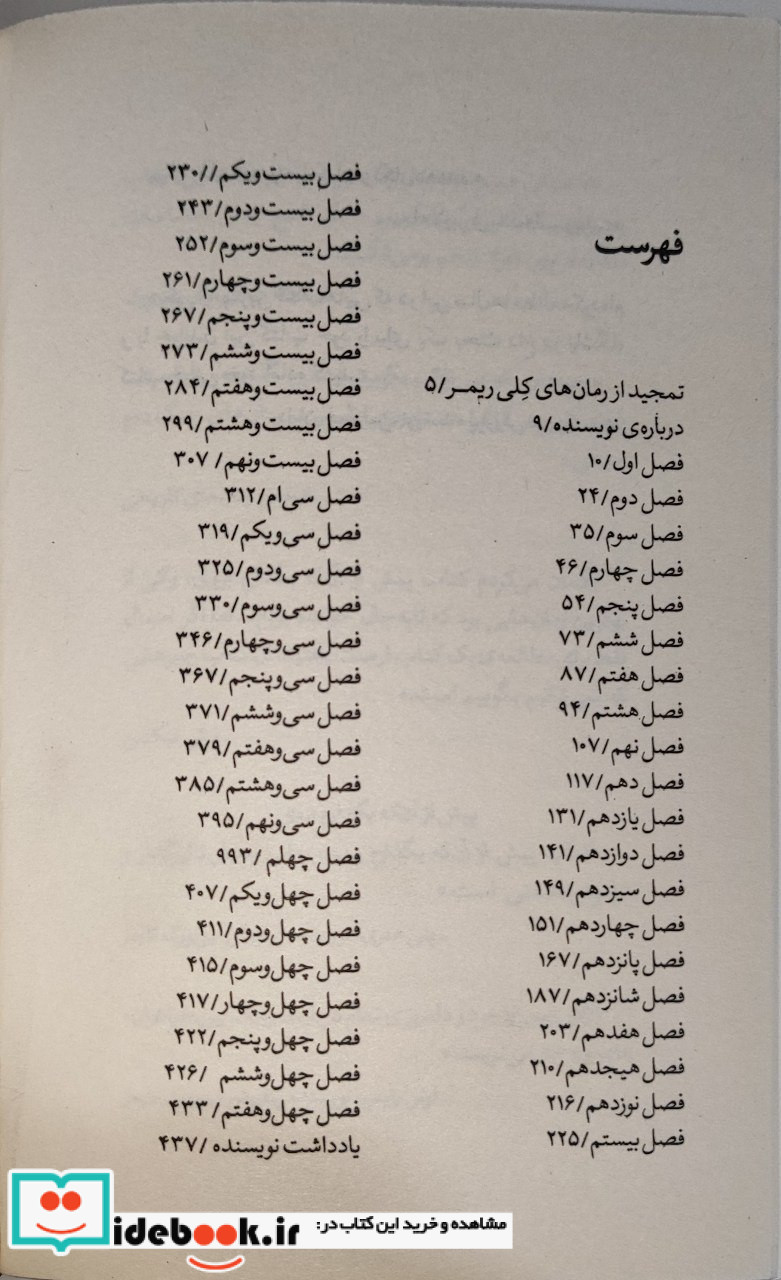 فهرست
تمجید از رمان‌های کِلی ریمر/۵
درباره‌ی نویسنده/۹
فصل اول/۱۰
فصل دوم/۲۴
فصل سوم/۳۵
فصل چهارم/۴۶
فصل پنجم/۵۴
فصل ششم/۷۳
فصل هفتم/۸۷
فصل هشتم/۹۴
فصل نهم/۱۰۷
فصل دهم/۱۱۷
فصل یازدهم/۱۳۱
فصل دوازدهم/۱۴۱
فصل سیزدهم/۱۴۹
فصل چهاردهم/۱۵۱
فصل پانزدهم/۱۶۷
فصل شانزدهم/۱۸۷
فصل هفدهم/۲۰۳
فصل هیجدهم/۲۱۰
فصل نوزدهم/۲۱۶
فصل بیستم/۲۲۵
فصل بیست‌ویکم//۲۳۰
فصل بیست‌ودوم/۲۴۳
فصل بیست‌وسوم/۲۵۲
فصل بیست‌وچهارم/۲۶۱
فصل بیست‌وپنجم/۲۶۷
فصل بیست‌وششم/۲۷۳
فصل بیست‌وهفتم/۲۸۴
فصل بیست‌وهشتم/۲۹۹
فصل بیست‌ونهم/ ۳۰۷
فصل سی‌ام/۳۱۲
فصل سی‌ویکم/۳۱۹
فصل سی‌ودوم/۳۲۵
فصل سی‌وسوم/۳۳۰
فصل سی‌وچهارم/۳۴۶
فصل سی‌وپنجم/۳۶۷
فصل سی‌وششم/۳۷۱
فصل سی‌وهفتم/۳۷۹
فصل سی‌وهشتم/۳۸۵
فصل سی‌ونهم/۳۹۵
فصل چهلم /۹۹۳
فصل چهل‌ویکم/۴۰۷
فصل چهل‌ودوم/۴۱۱
فصل چهل‌وسوم/۴۱۵
فصل چهل‌وچهار/۴۱۷
فصل چهل‌وپنجم/۴۲۲
فصل چهل‌وششم /۴۲۶
فصل چهل‌وهفتم/۴۳۳
یادداشت نویسنده /۴۳۷
مشاهده و خرید این کتاب در:
idebook.ir